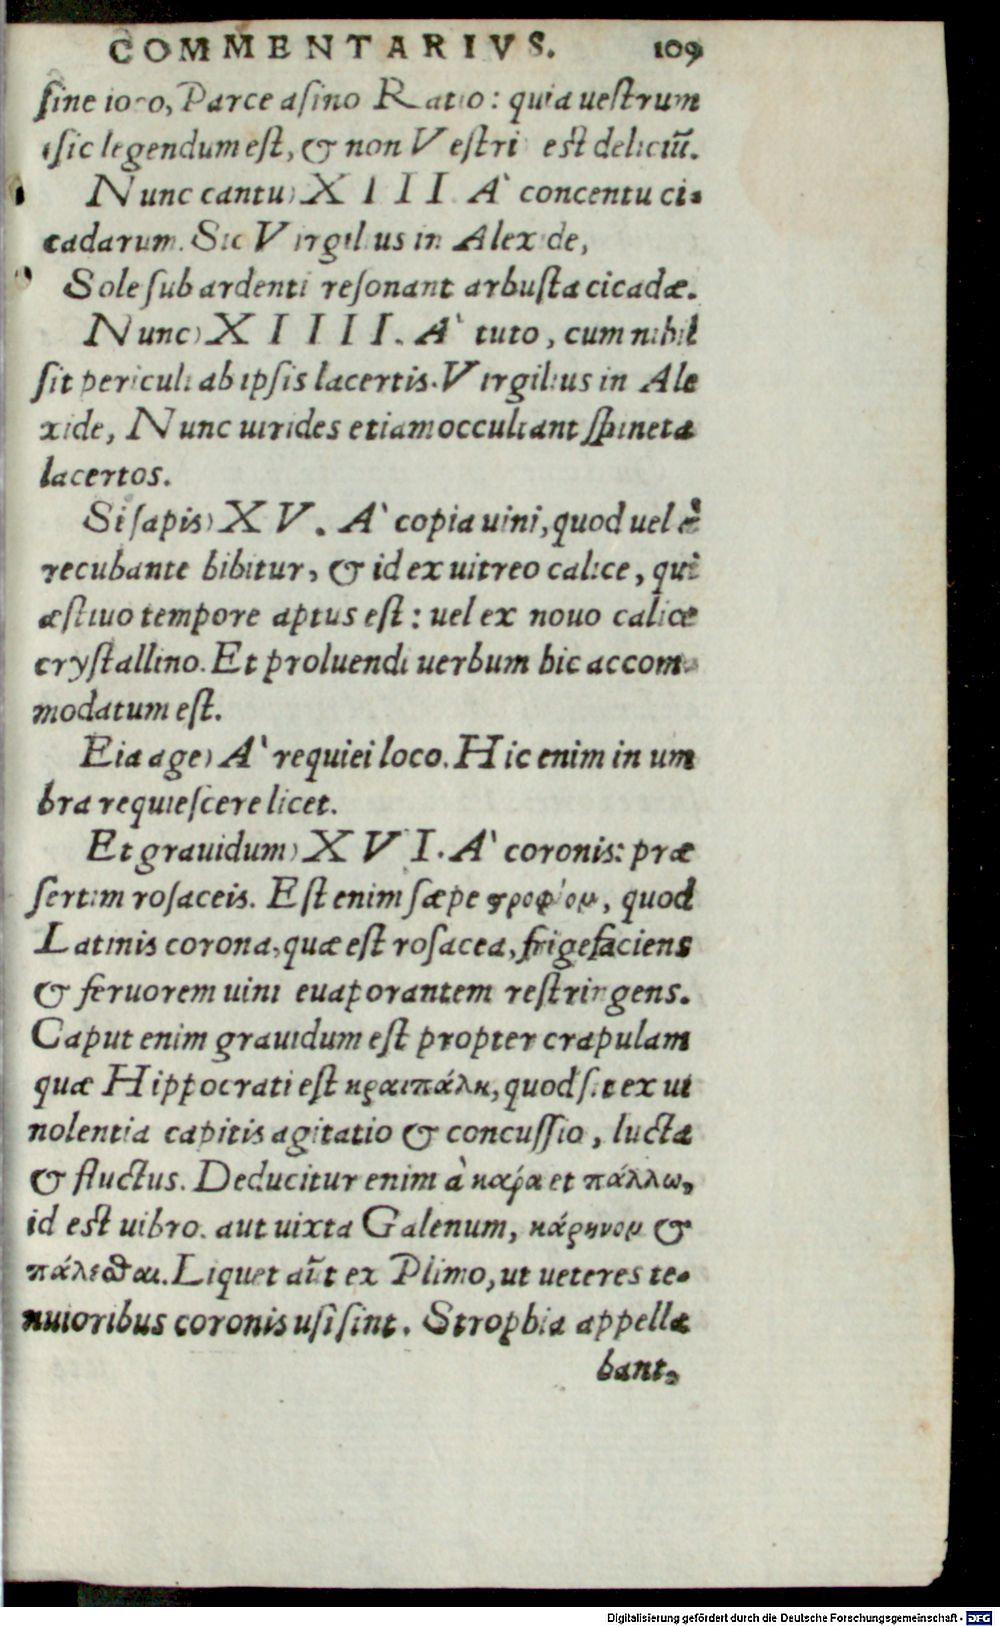 COMMENTARIVS. 109
sine ioco, Parce asino Ratio: quia uestrum
(sic legendum est, & non Vestri est deliciũ.
Nunc cantu) XIII. A` concentu ci-
cadarum. Sic Virgilius in Alexide,
Sole sub ardenti resonant arbusta cicadæ.
Nunc) XIIII. A` tuto, cum nihil
sit periculi ab ipsis lacertis. Virgilius in Ale
xide, Nunc uirides etiam occultant spineta
lacertos.
Si sapis) XV. A` copia uini, quod uel è
recubante bibitur, & id ex uitreo calice, qui
æstiuo tempore aptus est: uel ex nouo calice
crystallino. Et proluendi uerbum hic accom-
modatum est.
Eia age) A` requiei loco. Hic enim in um
bra requiescere licet.
Et grauidum) XVI. A` coronis: præ
sertim rosaceis. Est enim sæpe ςροφίομ, quod
Latinis corona, quæ est rosacea, frigefaciens
& feruorem uini euaporantem restringens.
Caput enim grauidum est propter crapulam
quæ Hippocrati est κραιπάλη, quod sit ex ui
nolentia capitis agitatio & concussio, lucta
& fluctus. Deducitur enim à κάρα et πάλλω,
id est uibro. aut uixta Galenum, κάρηνομ &
πάλεσθαι. Liquet aũt ex Plinio, ut ueteres te-
nuioribus coronis usi sint. Strophia appella
bant,
Digitalisierung gefördert durch die Deutsche Forschungsgemeinschaft - DFG